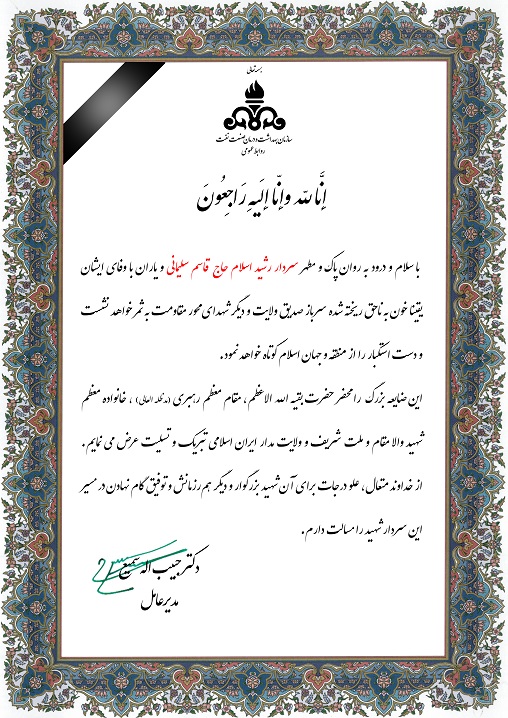 بسمه تعالی
سازمان بهداشت و درمان صنعت نفت
روابط عمومی
إنَّا لله وإنّا إلَیهِ رَاجِعُونَ
با سلام و درود به روان پاک و مطهر سردار رشید اسلام حاج قاسم سلیمانی و یاران با وفای ایشان
یقینا خون به ناحق ریخته شده سرباز صدیق ولایت و دیگر شهدای محور مقاومت به ثمر خواهد نشست
و دست استکبار را از منطقه و جهان اسلام کوتاه خواهد نمود.
این ضایعه بزرگ را محضر حضرت بقیه الله الاعظم، مقام معظم رهبری (مدظله العالی) ، خانواده معظم
شهید والا مقام و ملت شریف و ولایت مدار ایران اسلامی تبریک و تسلیت عرض می نمایم.
از خداوند متعال، علو درجات برای آن شهید بزرگوار و دیگر هم رزمانش و توفیق گام نهادن در مسیر
این سردار شهید را مسالت دارم.
دکتر حبیب اله سمیع
مدیرعامل